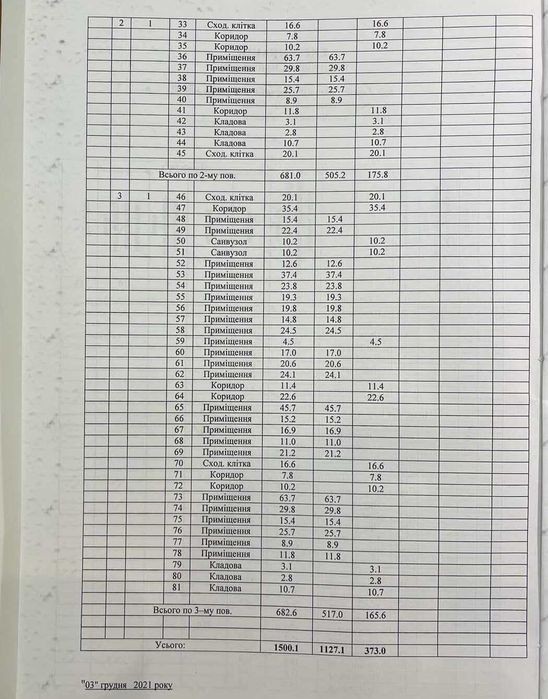 2 1 33 Сход. клітка 16.6 16.6
34 Коридор 7.8 7.8
35 Коридор 10.2 10.2
36 Приміщення 63.7 63.7
37 Приміщення 29.8 29.8
38 Приміщення 15.4 15.4
39 Приміщення 25.7 25.7
40 Приміщення 8.9 8.9
41 Коридор 11.8 11.8
42 Кладова 3.1 3.1
43 Кладова 2.8 2.8
44 Кладова 10.7 10.7
45 Сход. клітка 20.1 20.1
Всього по 2-му пов. 681.0 505.2 175.8
3 1 46 Сход. клітка 20.1 20.1
47 Коридор 35.4 35.4
48 Приміщення 15.4 15.4
49 Приміщення 22.4 22.4
50 Санвузол 10.2 10.2
51 Санвузол 10.2 10.2
52 Приміщення 12.6 12.6
53 Приміщення 37.4 37.4
54 Приміщення 23.8 23.8
55 Приміщення 19.3 19.3
56 Приміщення 19.8 19.8
57 Приміщення 14.8 14.8
58 Приміщення 24.5 24.5
59 Приміщення 4.5 4.5
60 Приміщення 17.0 17.0
61 Приміщення 20.6 20.6
62 Приміщення 24.1 24.1
63 Коридор 11.4 11.4
64 Коридор 22.6 22.6
65 Приміщення 45.7 45.7
66 Приміщення 15.2 15.2
67 Приміщення 16.9 16.9
68 Приміщення 11.0 11.0
69 Приміщення 21.2 21.2
70 Сход. клітка 16.6 16.6
71 Коридор 7.8 7.8
72 Коридор 10.2 10.2
73 Приміщення 63.7 63.7
74 Приміщення 29.8 29.8
75 Приміщення 15.4 15.4
76 Приміщення 25.7 25.7
77 Приміщення 8.9 8.9
78 Приміщення 11.8 11.8
79 Кладова 3.1 3.1
80 Кладова 2.8 2.8
81 Кладова 10.7 10.7
Всього по 3-му пов. 682.6 517.0 165.6
Усього: 1500.1 1127.1 373.0
"03" грудня 2021 року